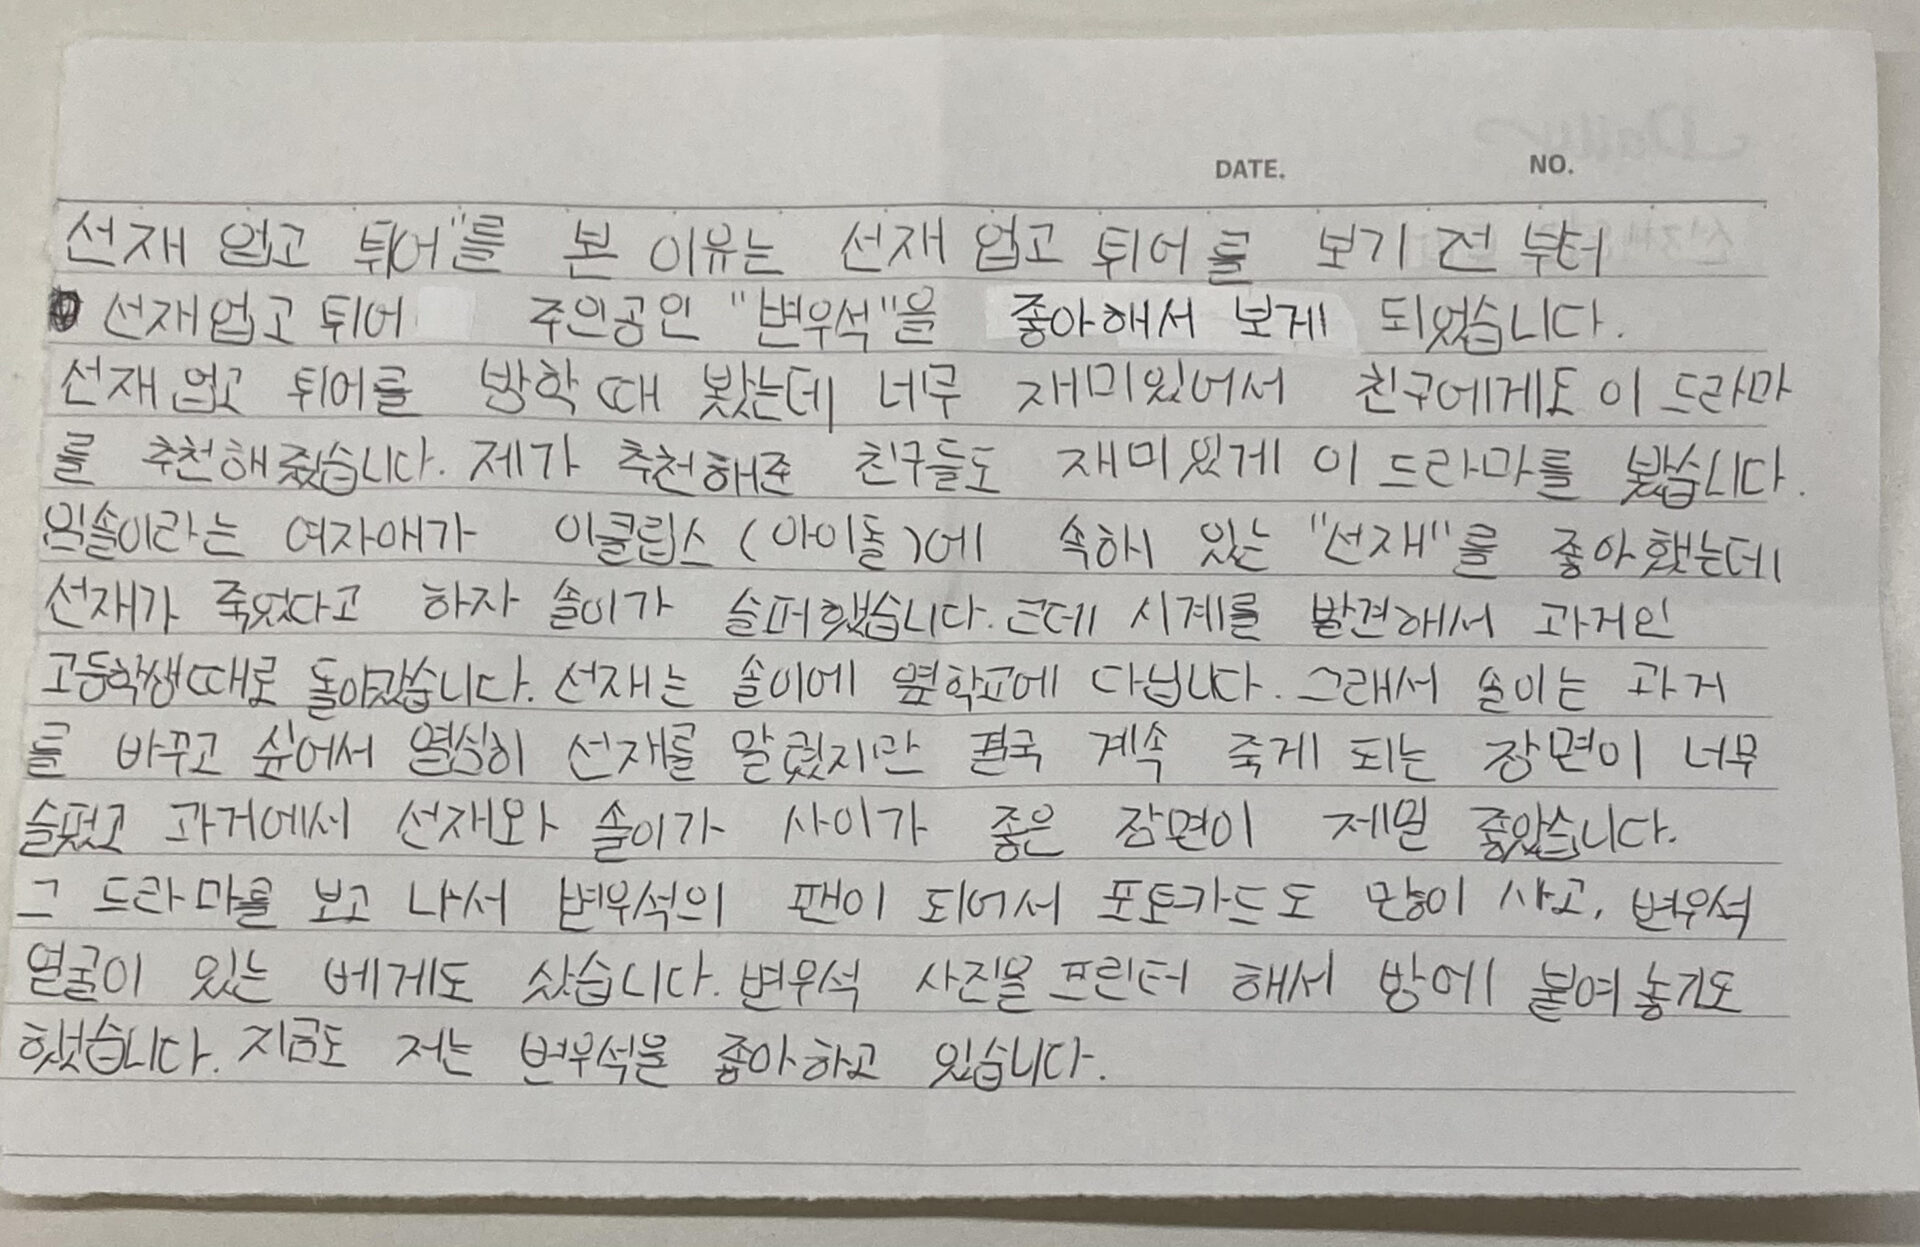 DATE. NO.
선재 업고 튀어"를 본 이유는 선재 업고 튀어를 보기 전 부터
선재업고 튀어 주인공인 "변우석"을 좋아해서 보게 되었습니다.
선재 업고 튀어를 방학 때 봤는데 너무 재미있어서 친구에게도 이 드라마
를 추천해줬습니다. 제가 추천해준 친구들도 재미있게 이 드라마를 봤습니다.
임솔이라는 여자애가 이클립스 (아이돌)에 속해 있는 "선재"를 좋아했는데
선재가 죽었다고 하자 솔이가 슬퍼했습니다. 근데 시계를 발견해서 과거인
고등학생때로 돌아갔습니다. 선재는 솔이에 옆학교에 다닙니다. 그래서 솔이는 과거
를 바꾸고 싶어서 열심히 선재를 말렸지만 결국 계속 죽게 되는 장면이 너무
슬펐고 과거에서 선재와 솔이가 사이가 좋은 장면이 제일 좋았습니다.
그 드라마를 보고 나서 변우석의 팬이 되어서 포토카드도 많이 사고, 변우석
얼굴이 있는 베게도 샀습니다. 변우석 사진을 프린터 해서 방에 붙여 놓기도
했습니다. 지금도 저는 변우석을 좋아하고 있습니다.